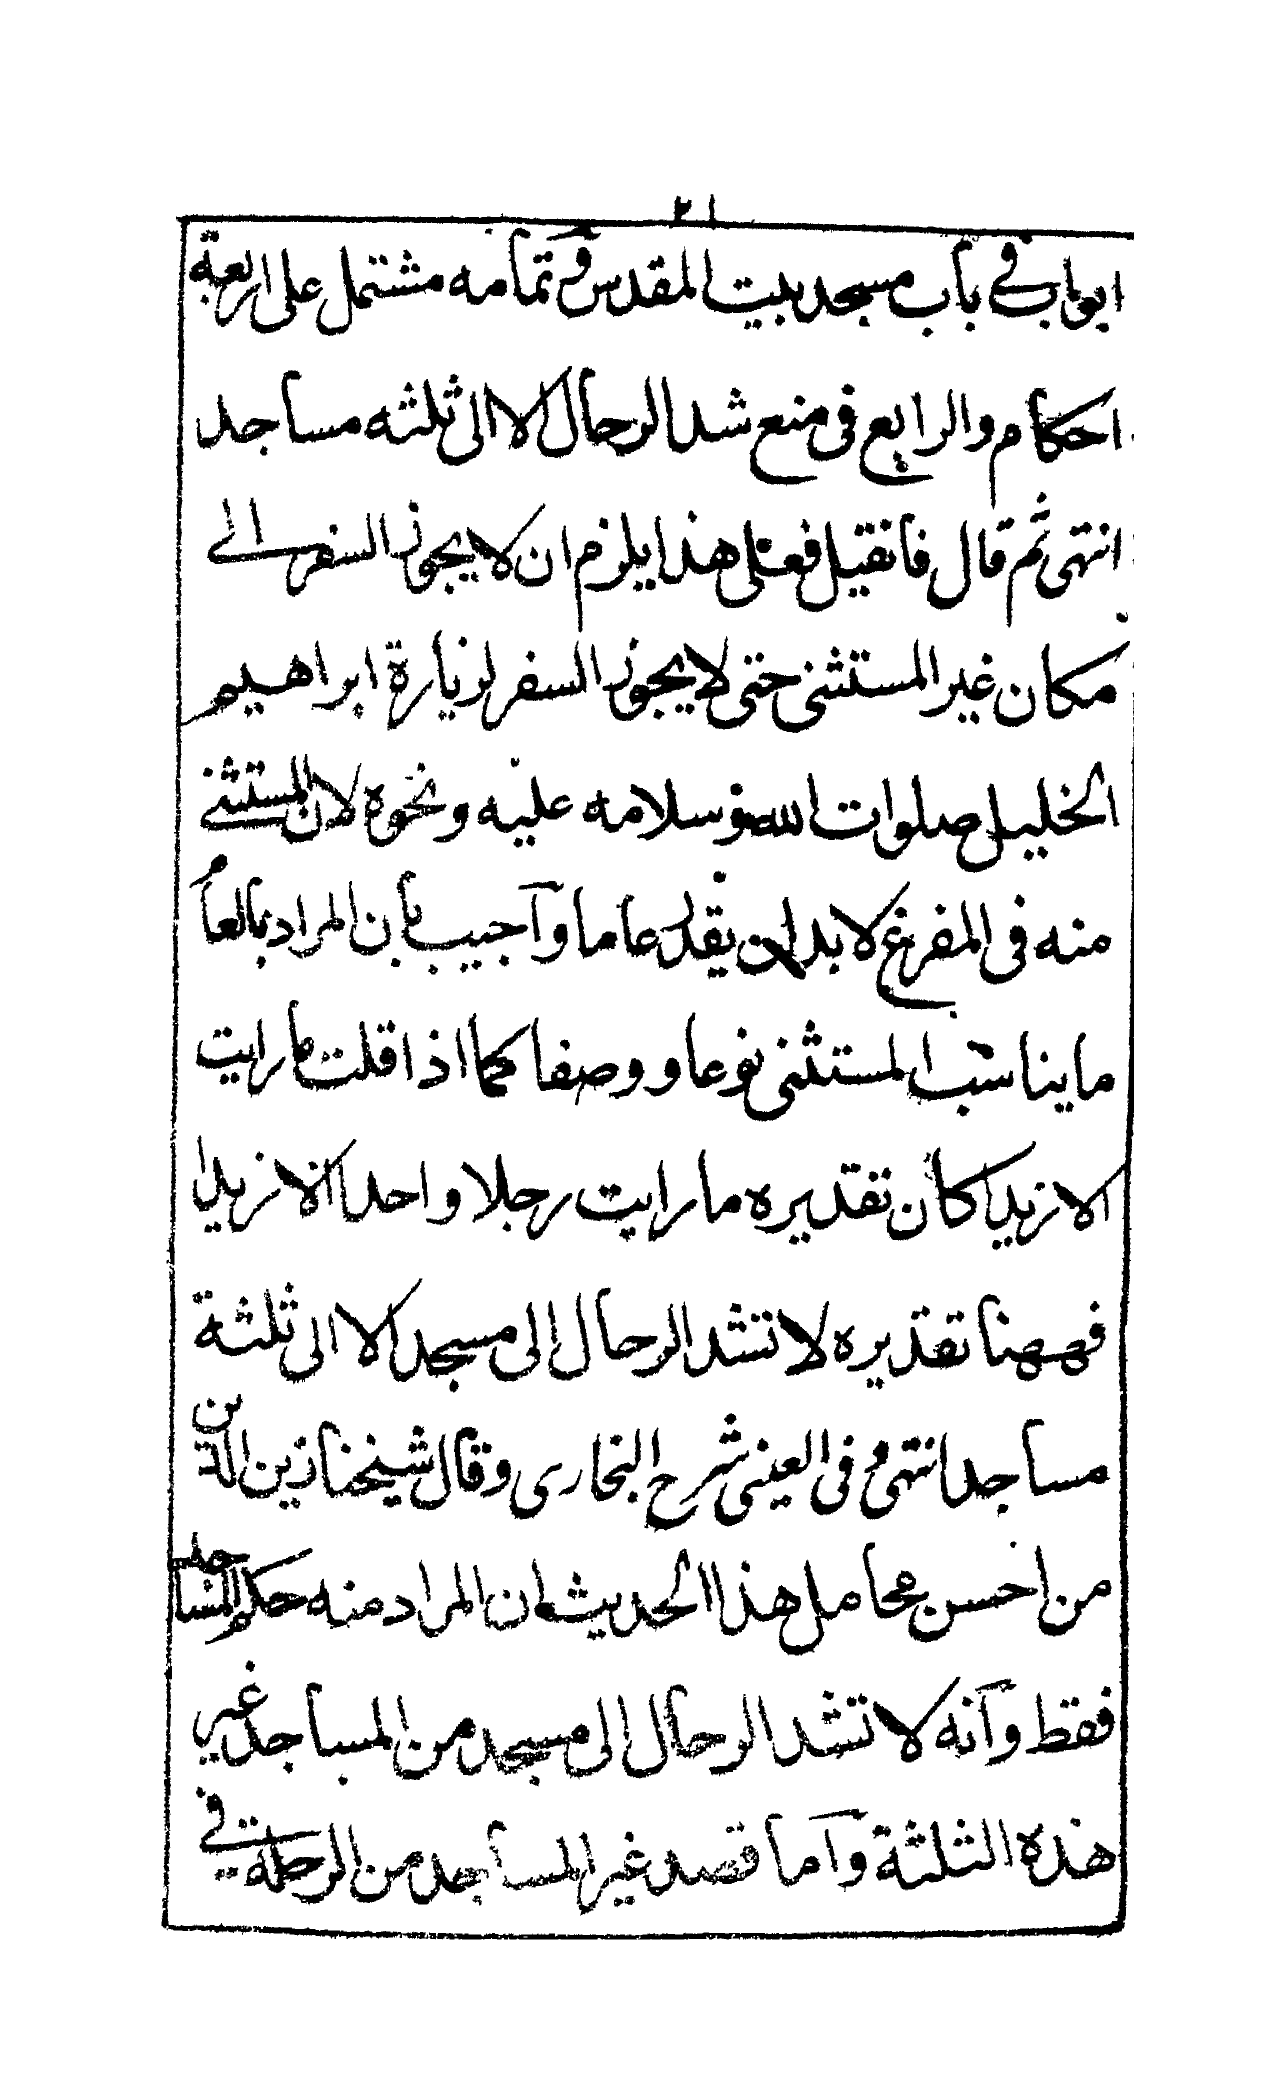 ٢١
ابواب في باب مسجد بيت المقدس وتمامه مشتمل على اربعة
احكام والرابع فى منع شد الرحال الا الى ثلثه مساجد
انتهى ثم قال فان قيل فعلى هذا يلزم ان لا يجوز السفر الى
مكان غير المستثنى حتى لا يجوز السفر لزيارة ابراهيم
الخليل صلوات الله وسلامه عليه ونحوه لان المستثنى
منه فى المفرغ لا بد ان يقدر عاما وآجيب بان المراد بالعام
ما يناسب المستثنى نوعا ووصفا كما اذا قلت ما رايت
الا زيدا كان تقديره ما رايت رجلا واحدا الا زيدا
فههنا تقديره لا تشد الرحال الى مسجد الا الى ثلثة
مساجد انتهى و فى العينى شرح البخارى وقال شيخنا زين الدين
من احسن محامل هذا الحديث ان المراد منه حكم المساجد
فقط وآنه لا تشد الرحال الى مسجد من المساجد غير
هذه الثلثة وآما قصد غير المساجد من الرحلة في